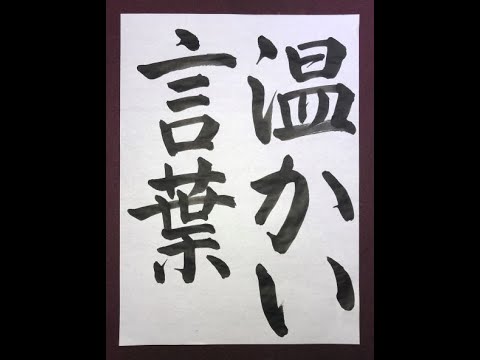 温かい
言葉